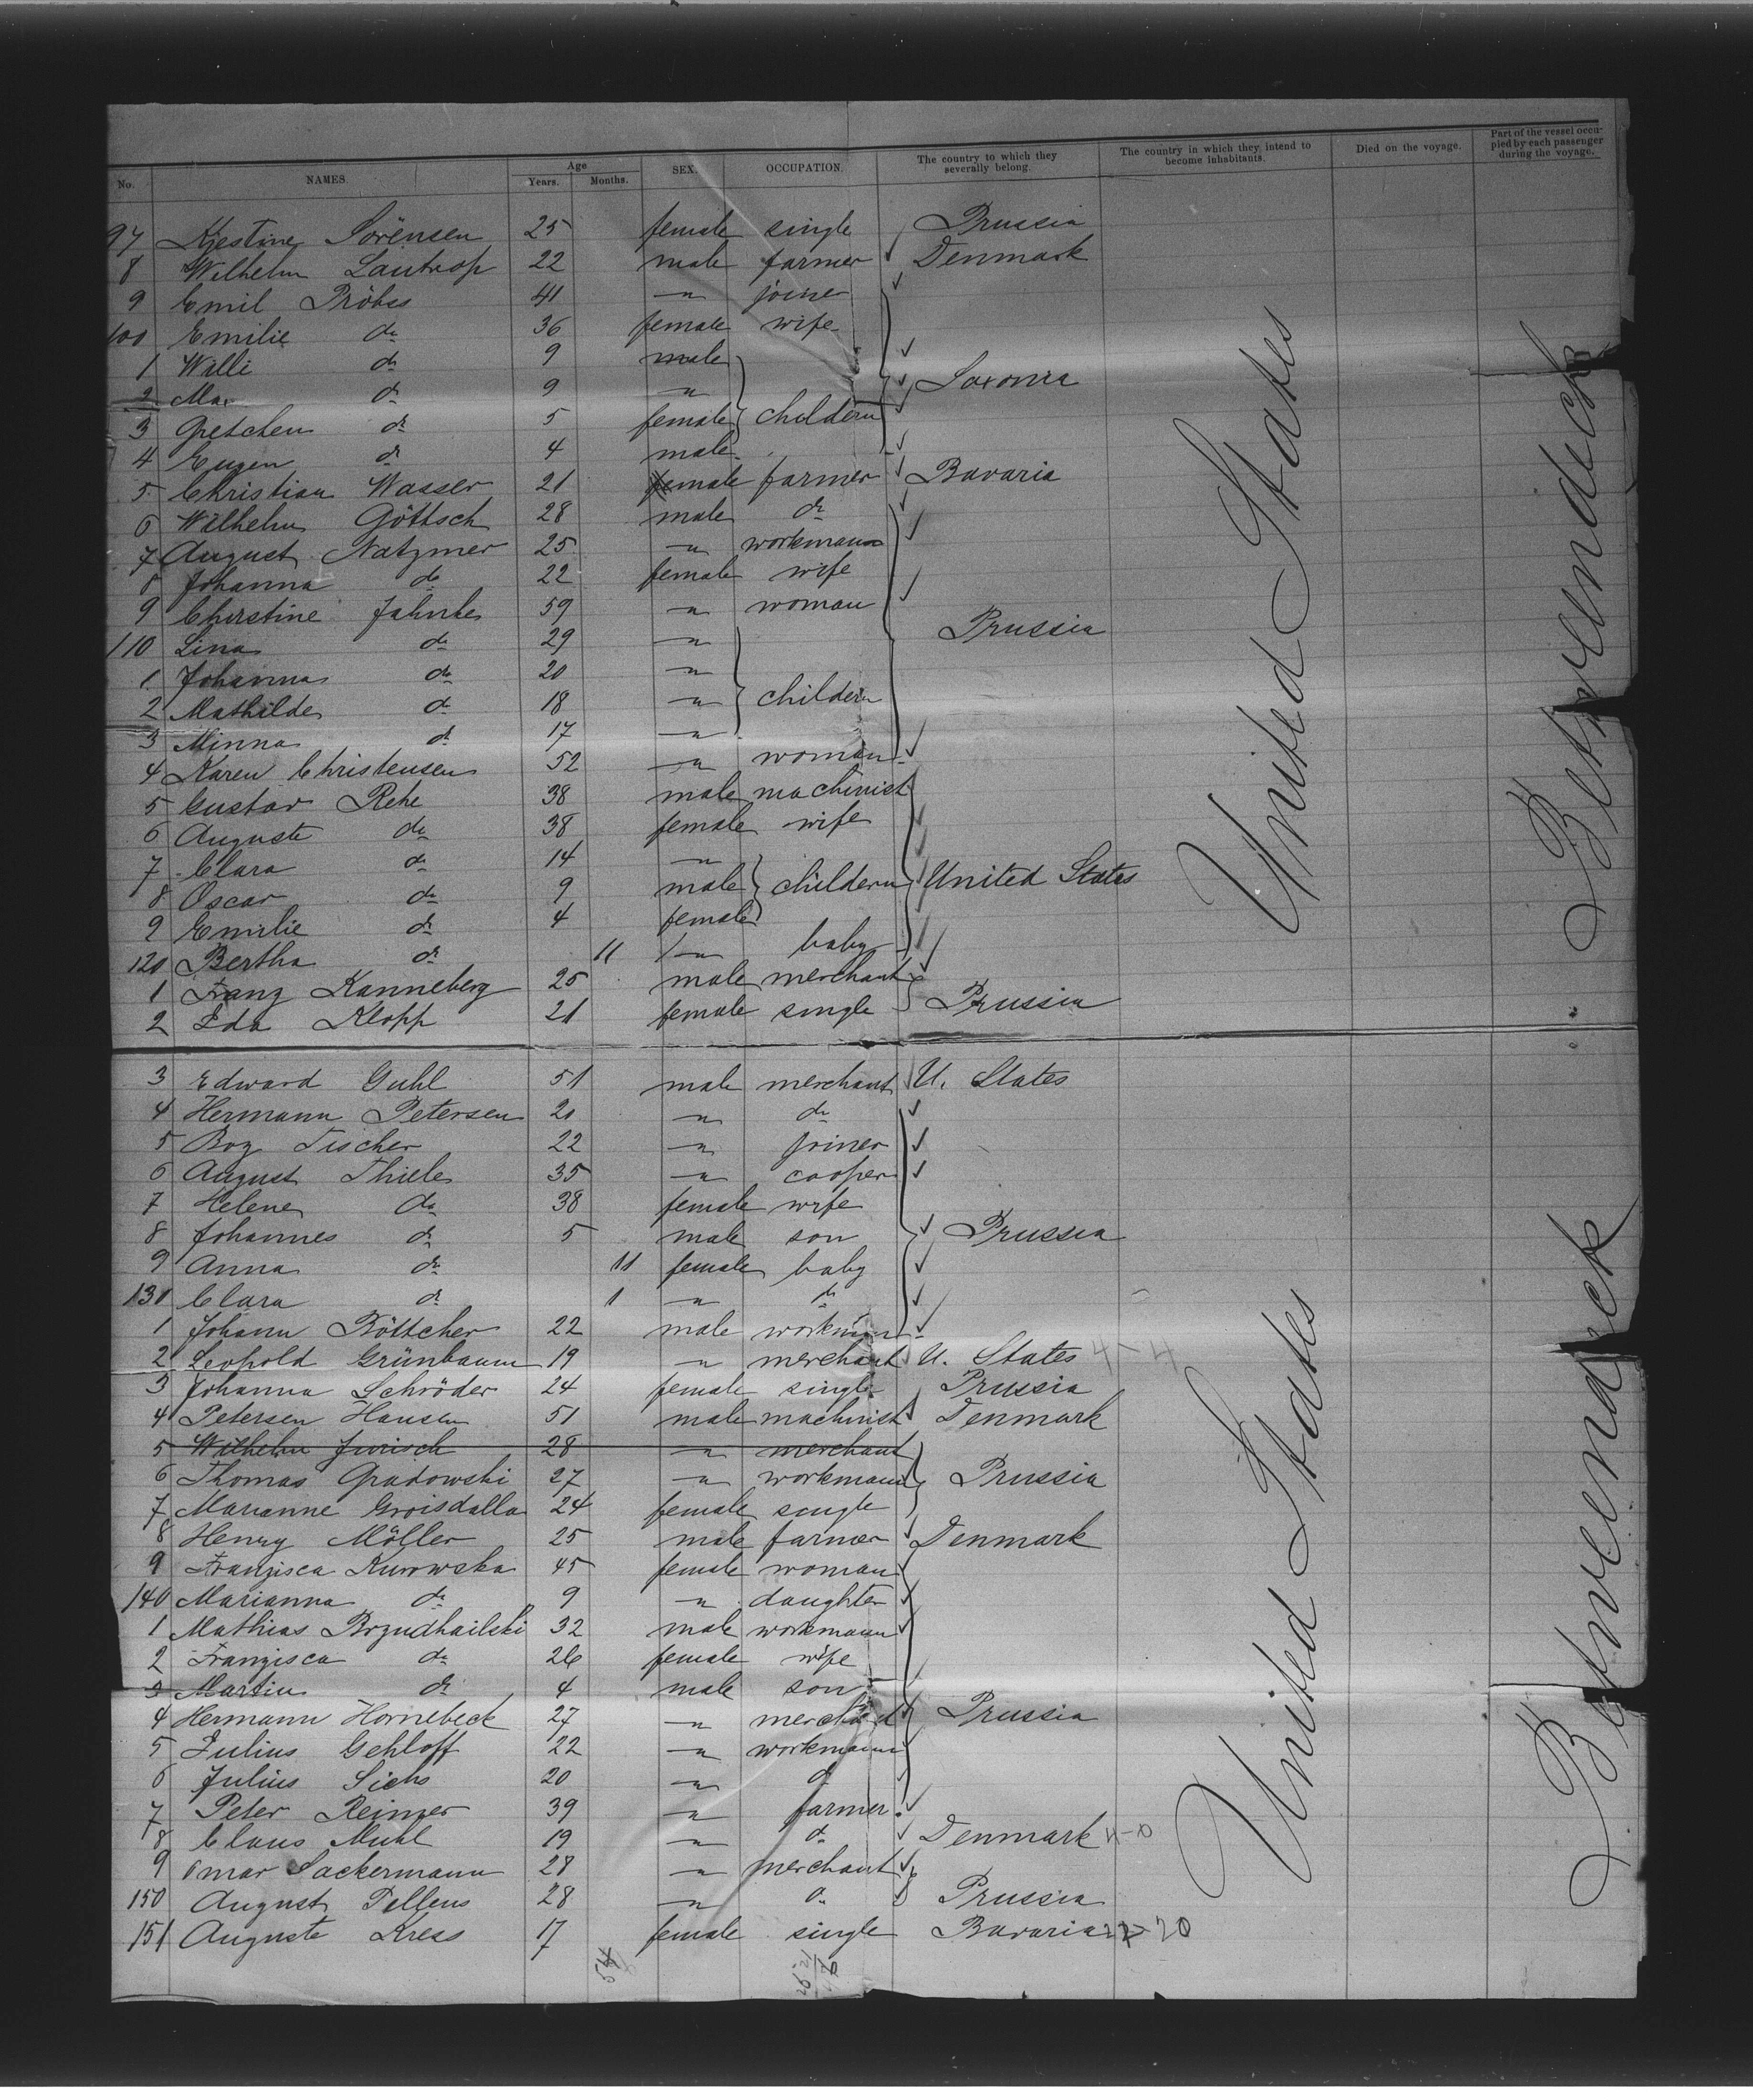 No. NAMES. Age Years. Months. SEX. OCCUPATION. The country to which they severally belong. The country in which they intend to become inhabitants. Died on the voyage. Part of the vessel occupied by each passenger during the voyage.
97 Kjestine Sörensen 25 female single Prussia
8 Wilhelm Lautrop 22 male farmer Denmark
9 Emil Pröbss 41 " joiner
100 Emilie do 36 female wife
1 Willi do 9 male
2 Max do 9 " Saxonia
3 Gretchen do 5 female childern
4 Eugen do 4 male
5 Christian Wasser 21 male farmer Bavaria
6 Wilhelm Göttsch 28 male do
7 August Natzmer 25 " workmann
8 Johanna do 22 female wife
9 Christine Jahnke 59 " woman
110 Lina do 29 " Prussia
1 Johanna do 20 "
2 Mathilde do 18 " childern
3 Minna do 17 "
4 Karen Christensen 52 " woman
5 Gustav Rehe 38 male machinist
6 Auguste do 38 female wife
7 Clara do 14 "
8 Oscar do 9 male childern United States
9 Emilie do 4 female
120 Bertha do 11 " baby
1 Franz Kanneberg 25 male merchant
2 Ida Klopp 21 female single Prussia
3 Edward Guhl 51 male merchant U. States
4 Hermann Petersen 21 " do
5 Boy Tischer 22 " joiner
6 August Thiele 35 " cooper
7 Helene do 38 female wife
8 Johannes do 5 male son Prussia
9 Anna do 11 female baby
130 Clara do 1 " do
1 Johann Böttcher 22 male workman
2 Leopold Grünbaum 19 " merchant U. States 4-4
3 Johanna Schröder 24 female single Prussia
4 Petersen Hansen 51 male machinist Denmark
5 Wilhelm Jurisch 28 " merchant
6 Thomas Gradowski 27 " workmann Prussia
7 Marianne Groisdalla 24 female single
8 Henry Möller 25 male farmer Denmark
9 Franzisca Kurowska 45 female woman
140 Marianna do 9 " daughter
1 Mathias Brzudhailski 32 male workmann
2 Franzisca do 26 female wife
3 Martin do 4 male son
4 Hermann Hornebeck 27 " merchant Prussia
5 Julius Gehloff 22 " workmann
6 Julius Sichs 20 " do
7 Peter Reimer 39 " farmer
8 Claus Muhl 19 " do Denmark 4-0
9 Omar Sackermann 28 " merchant
150 August Tellens 28 " do Prussia
151 Auguste Kress 17 female single Bavaria 20
54
United States
Betweendeck
United States
Betweendeck